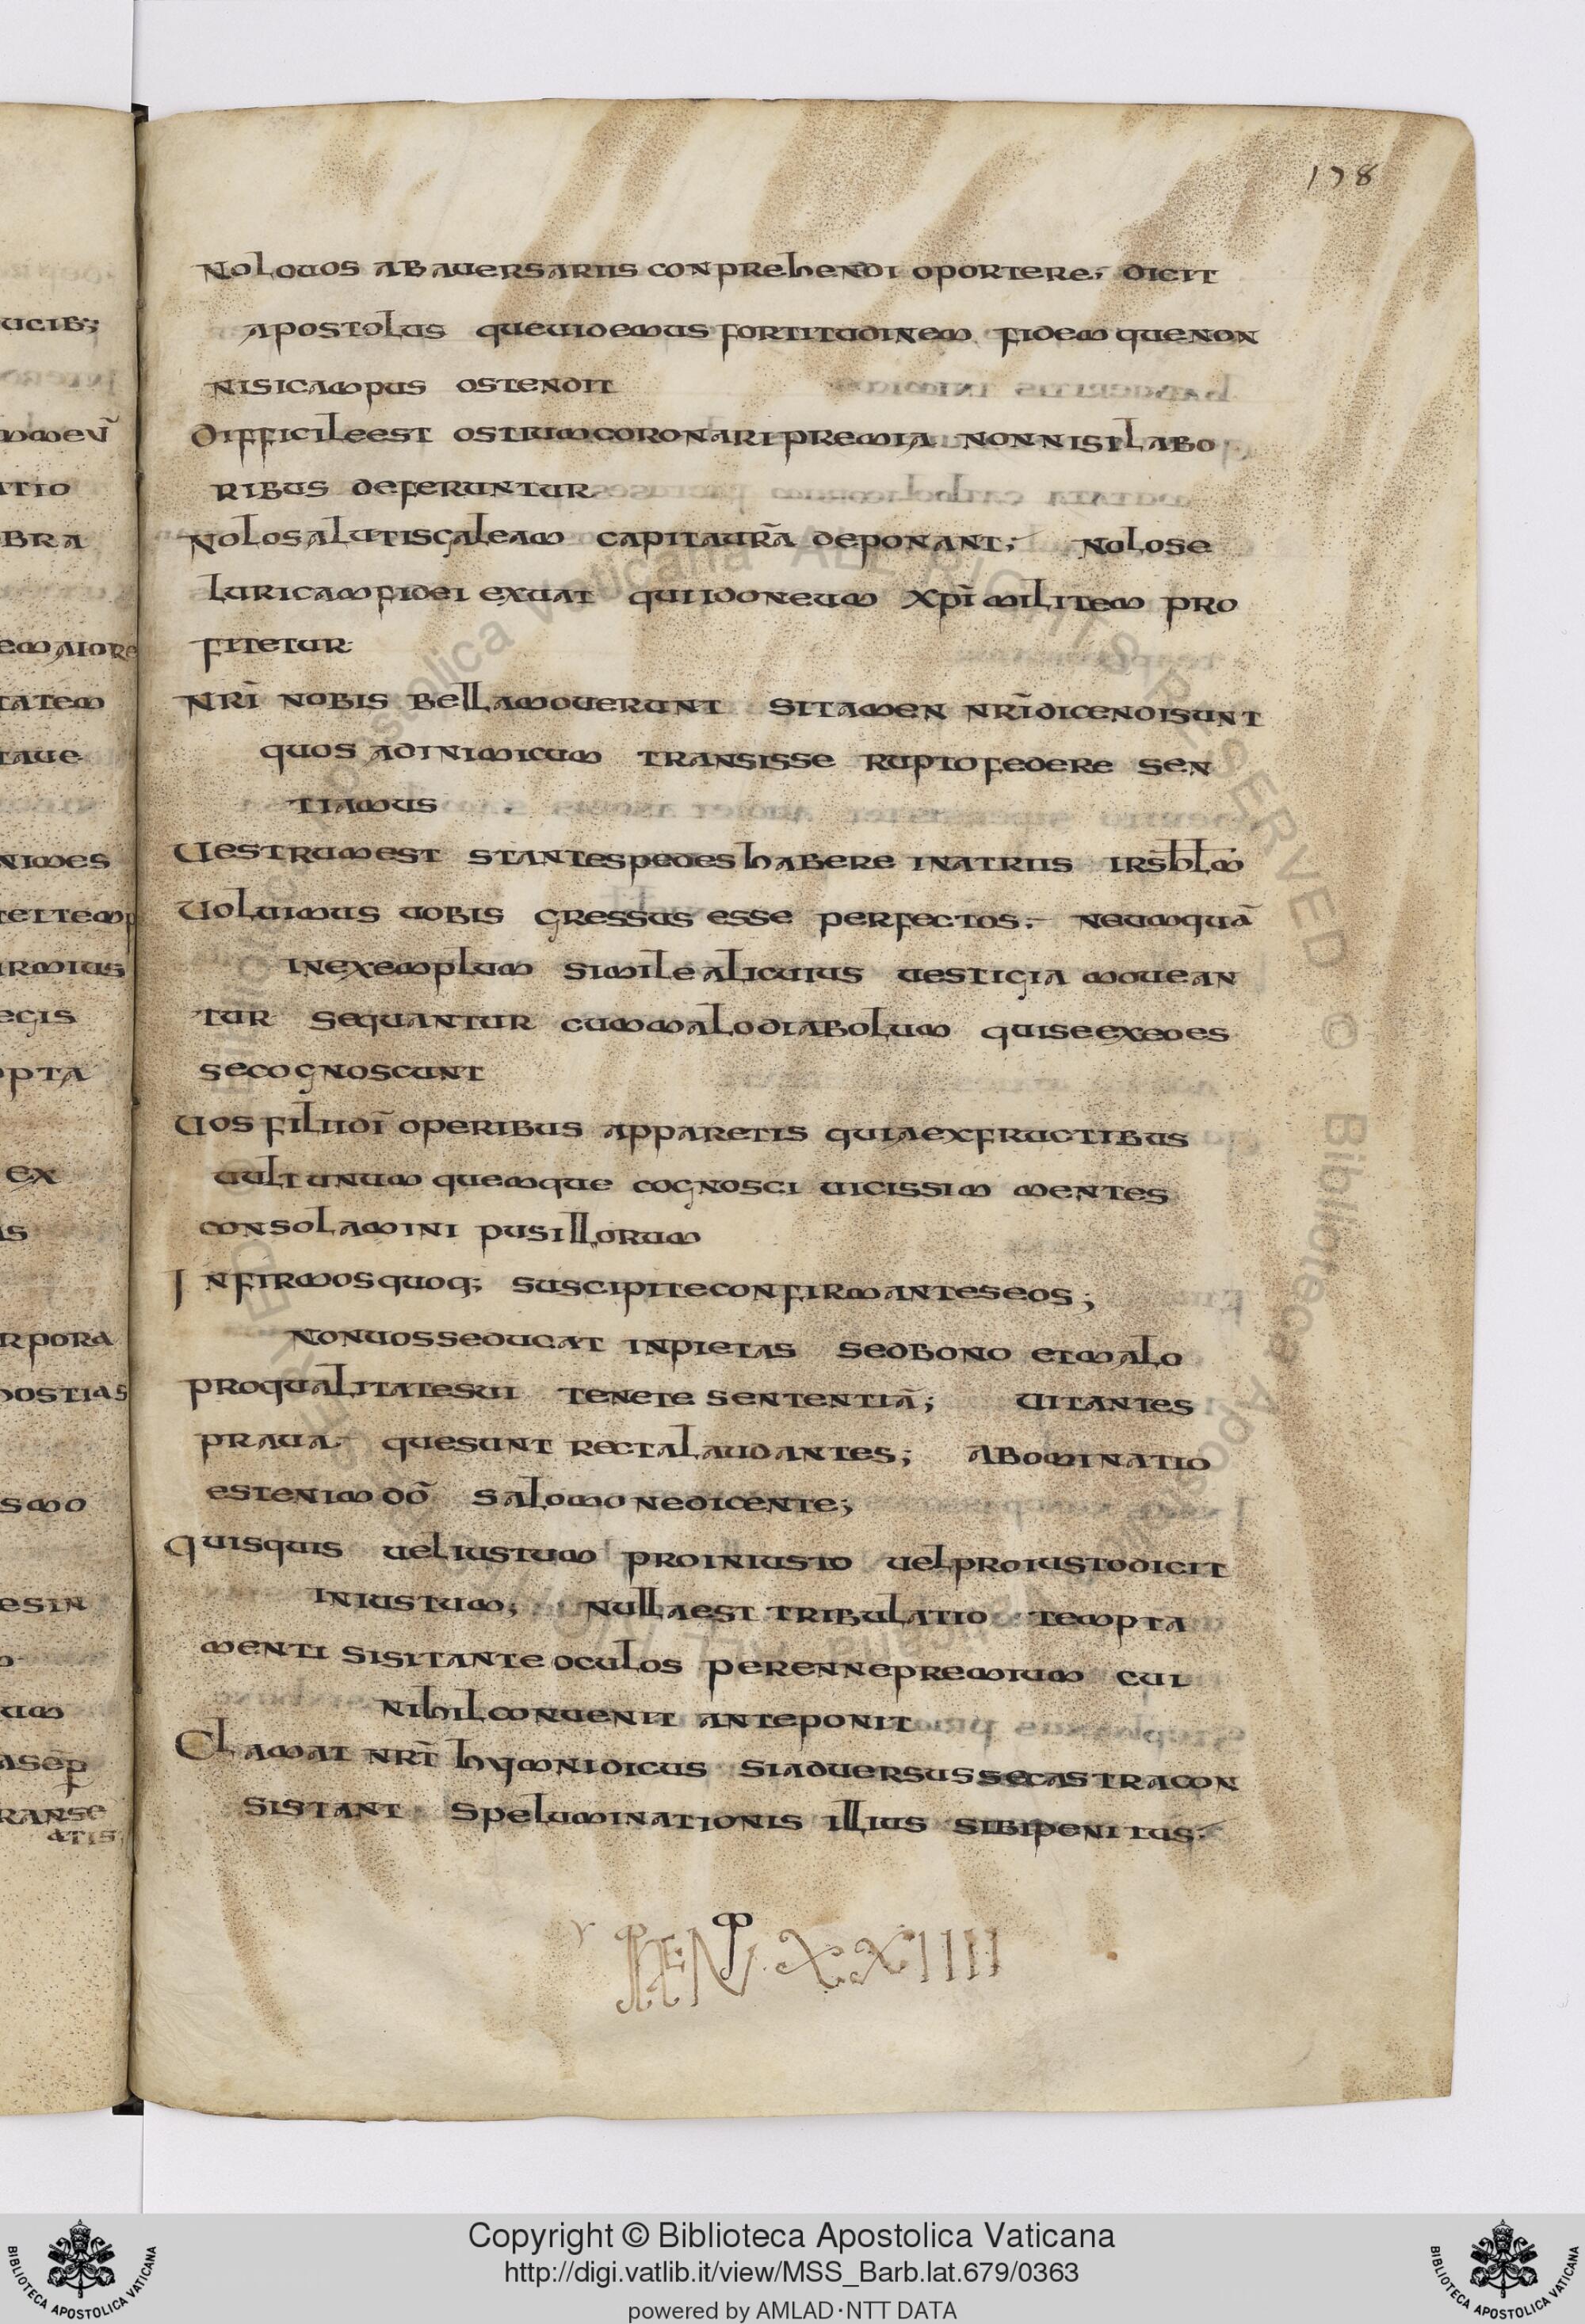 178
Nolo uos ab auersariis conprehendi oportere; dicit
apostolus que uidemus fortitudinem fidemque non
nisi campus ostendit
Difficile est ostium coronari premia non nisi labo
ribus deferuntur
Nolo salutis galeam capita ur̄a deponant; Nolo se
luricam fidei exuat qui idoneum xp̄i militem pro
fitetur
Nr̄i nobis bella mouerunt si tamen nr̄i dicendi sunt
quos ad inimicum transisse rupto federe sen
tiamus
Uestrum est stantes pedes habere in atriis irs̄lm̄
Uoluimus uobis gressus esse perfectos. Ne umquā
in exemplum simile alicuius uestigia mouean
tur sequantur cum malo diabolum qui se ex edes
se cognoscunt
Uos filii dī operibus apparetis quia ex fructibus
uult unum quemque cognosci uicissim mentes
consolamini pusillorum
Infirmos quoq; suscipite confirmantes eos;
Non uos seducat inpietas sed bono et malo
pro qualitate sui tenete sententiā; Uitantes
praua que sunt recta laudantes; Abominatio
est enim dō Salomone dicente;
Quisquis uel iustum pro iniusto uel pro iusto dicit
iniustum; Nulla est tribulatio tempta
menti si sit ante oculos perenne premium cui
nihil conuenit anteponi
Clamat nr̄i hymnidicus si aduersus se castra con
sistant spe luminationis illius sibi penitus
XXIIII
Copyright © Biblioteca Apostolica Vaticana
http://digi.vatlib.it/view/MSS_Barb.lat.679/0363
powered by AMLAD·NTT DATA
BIBLIOTECA APOSTOLICA VATICANA
BIBLIOTECA APOSTOLICA VATICANA